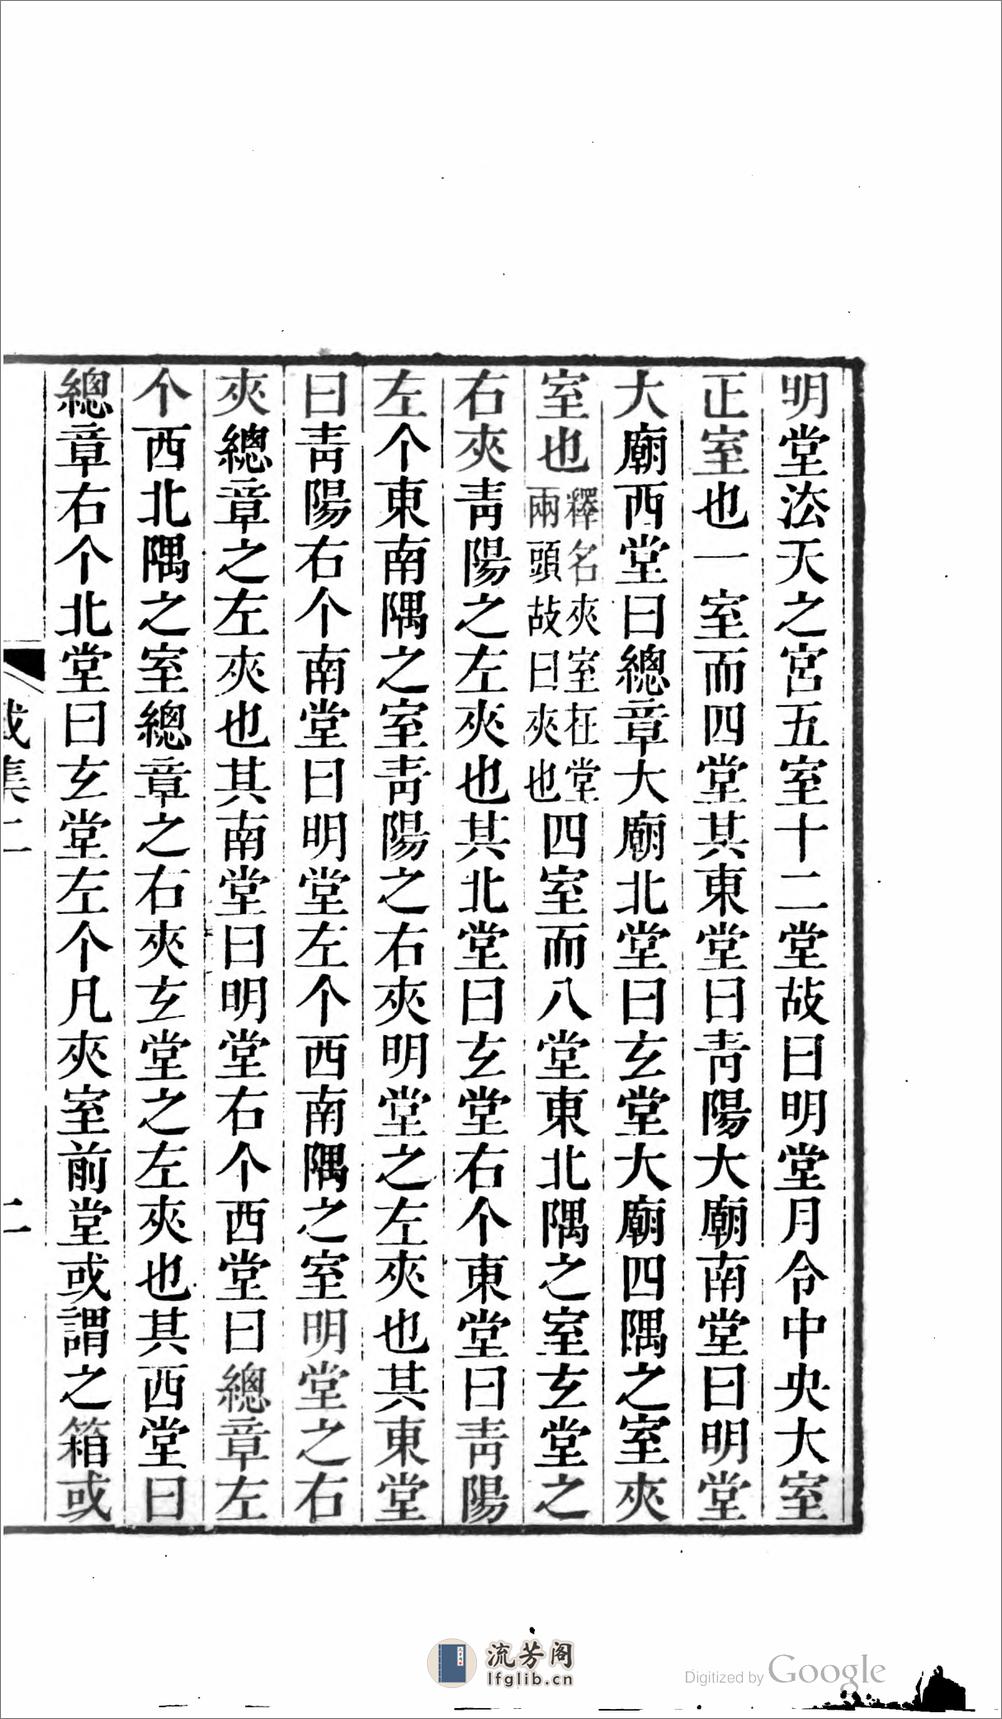 明堂法天之宮五室十二堂故曰明堂月令中央大室
正室也一室而四堂其東堂曰靑陽大廟南堂曰明堂
大廟西堂曰總章大廟北堂曰玄堂大廟四隅之室夾
室也釋名夾室在堂兩頭故曰夾也四室而八堂東北隅之室玄堂之
右夾靑陽之左夾也其北堂曰玄堂右个東堂曰靑陽
左个東南隅之室靑陽之右夾明堂之左夾也其東堂
曰靑陽右个南堂曰明堂左个西南隅之室明堂之右
夾總章之左夾也其南堂曰明堂右个西堂曰總章左
个西北隅之室總章之右夾玄堂之左夾也其西堂曰
總章右个北堂曰玄堂左个凡夾室前堂或謂之箱或
集二
二
流芳阁
lfglib.cn
Digitized by Google